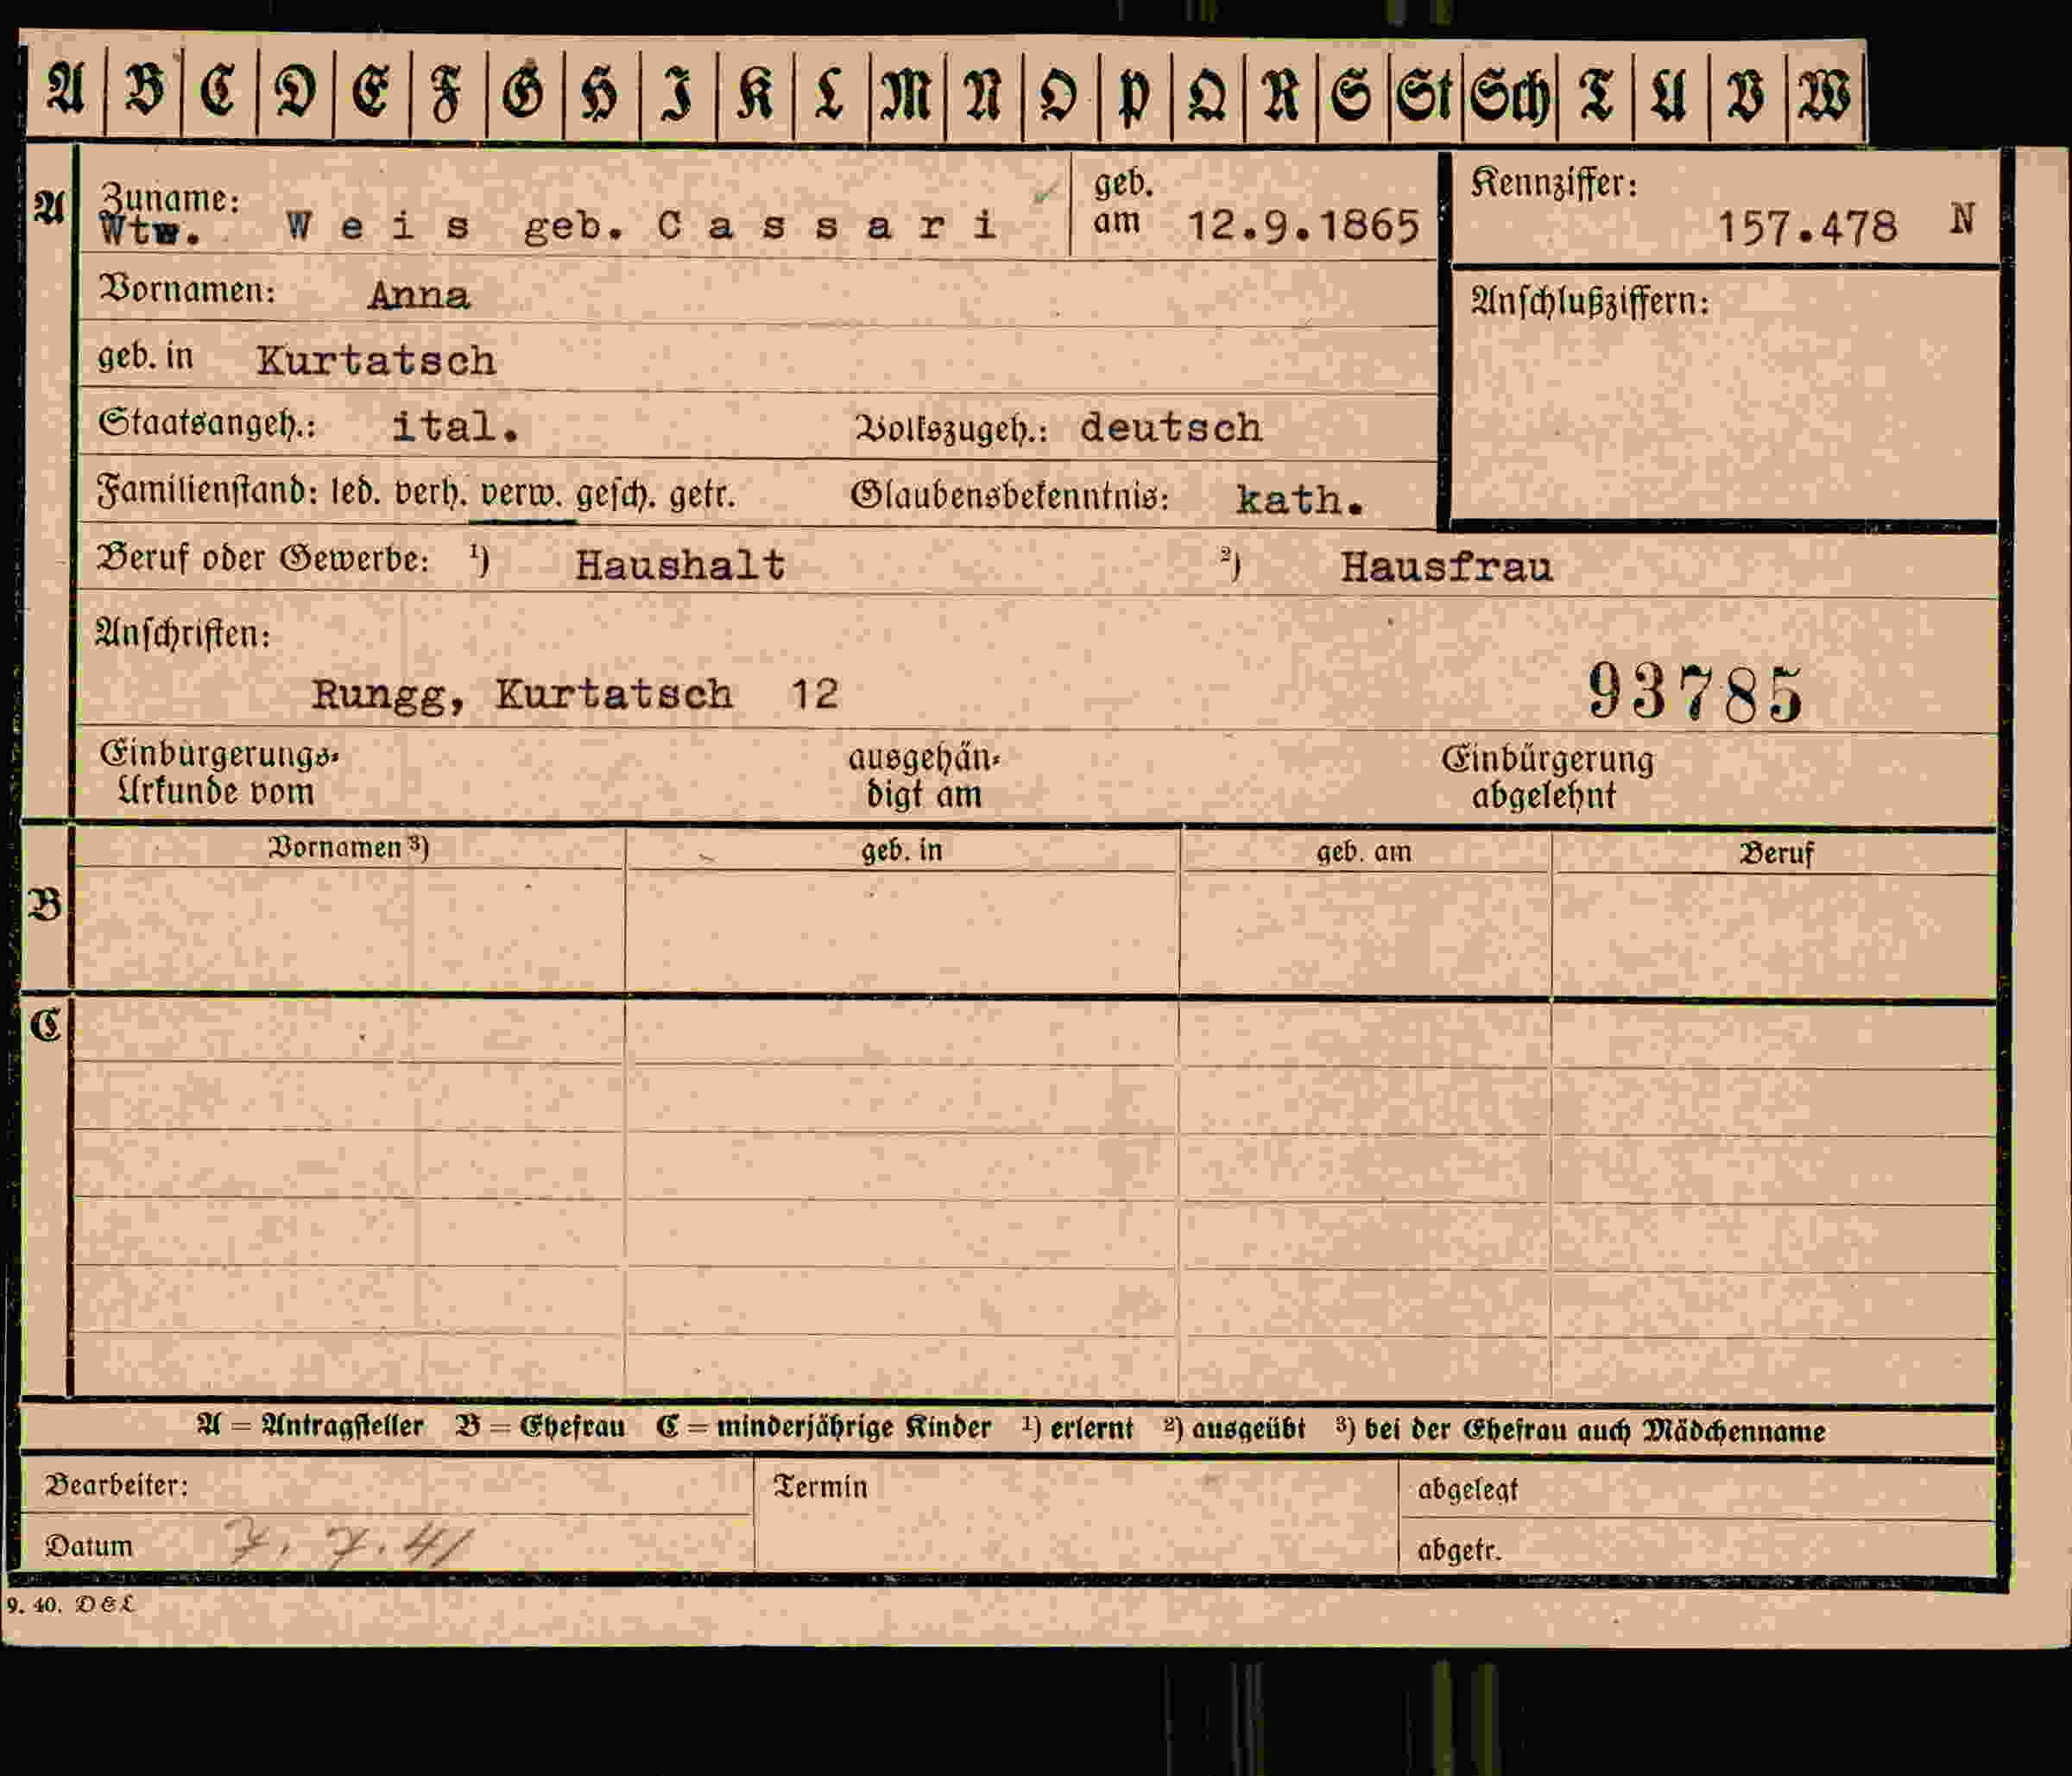 A B C D E F G H I K L M N O P Q R S St Sch T U V W
A Zuname: geb.
Wtw. Weis geb. Cassari am 12.9.1865 Kennziffer: 157.478 N
Vornamen: Anna Anschlußziffern:
geb. in Kurtatsch
Staatsangeh.: ital. Volkszugeh.: deutsch
Familienstand: led. verh. verw. gesch. getr. Glaubensbekenntnis: kath.
Beruf oder Gewerbe: ¹) Haushalt ²) Hausfrau
Anschriften:
Rungg, Kurtatsch 12 93785
Einbürgerungs- ausgehän- Einbürgerung
Urkunde vom digt am abgelehnt
Vornamen ³) geb. in geb. am Beruf
B
C
A = Antragsteller B = Ehefrau C = minderjährige Kinder ¹) erlernt ²) ausgeübt ³) bei der Ehefrau auch Mädchenname
Bearbeiter: Termin abgelegt
Datum 7. 7. 41 abgetr.
9. 40. D & L